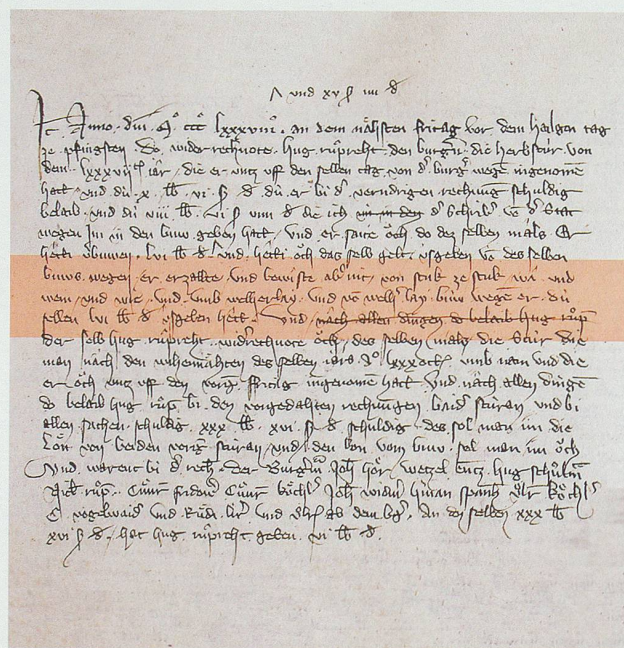 und xv ß iiii d
It. Anno dni Mº ccc lxxxviiiº an dem nähsten fritag vor dem heilgen tag
ze pfingsten do widerrechnote hug rüpreht den burgern die herbstür von
dem lxxxvii iar die er untz uff den selben tag von der burger wegen ingenomen
hatt und dü x lb vi ß d dü er bi der vorndrigen rechnung schuldig
belaib und dü viii lb vi ß viiii d die ich der Schriber von der Statt
wegen Im in den buw geben hatt Und er saite öch do dez selben mals Er
hetti lvi lb d und hetti öch das selb gelt usgeben von des selben
buws wegen er erzallte und bewiste aber nit von stuk ze stuk wa und
wem und wie und umb welherlay und von welher lay buw wegen er dü
selben lvi lb d usgeben hett Und nach allen dingen do belaib hug rüp
der selb hug rüpreht widerrechnote öch des selben mals die Stür die
man nach den wihennähten des selben iars umb nam Und die
er öch untz uff den vorg fritag ingenomen hatt Und nach allen dingen
do belaib hug rüp bi den vorgedahten rechnungen baider stüran und bi
allen sachen schuldig xxx lb xvi ß d schuldig des sol man im die
Lön von beiden vorg stüran und den lon vom buw sol man im öch
Und warent bi der rech der Burgerm Joh hör wetzel hug
rüp Cunr Cunr Joh ulr
C vogelwaid und Rüd und Ulr ab dem An den selben xxx lb
xvi ß d hat hug rüpreht geben vi lb d